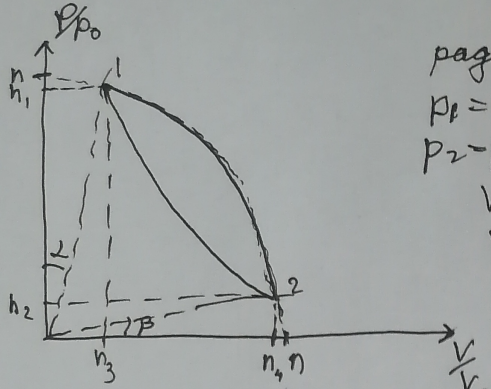 P/p₀
n
n₁
1
α
n₂
β
2
n₃
n₄ n
V/V
pag
p₁ =
p₂ =
V